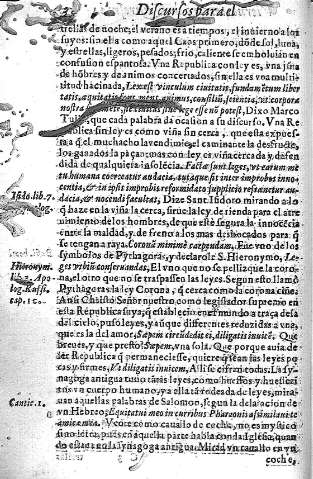 Discursos para el
trellas de noche, el verano es a tiempos, el inuierno a los
suyos: sin ella como aquel Caos primero, dōde sol, luna,
y estrellas, ligeros, pesados, frio, caliente se emboluian en
confusion espantosa. Vna Republica con ley es, vna jūta
de hōbres y de animos concertados, sin ella es vna multi-
tud hacinada, Lex est vinculum ciuitatis, fundamentum liber
tatis, æquitatis fons, mens, animus, consiliū, sententia, vt corpora
nostra sine mente, sic ciuitas sine lege esse nō potest, Dixo Marco
Tulio, que cada palabra da ocasion a su discurso. Vna Re
publica sin ley es como viña sin cerca, que esta expues-
ta a q̄ el muchacho la vendimie, el caminante la destruya,
los ganados la paçan: mas con ley es viña cercada y defen
dida de qualquiera insolēcia. Factæ sunt leges, vt earum me
tu humana coerceatur audacia, tutaque sit inter improbos inno
centia, & in ipsis improbis reformidato supplicio refrænetur au-
Isido. lib. 7.
dacia, & nocendi facultas, Dize Sant Isidoro mirando a lo
q̄ haze en la viña la cerca, sirue la ley de rienda para el atre
uimiento de los hombres, de que esté segura la innocēcia
entre la maldad, y de freno a los mas desbocados para q̄
se tengan a raya. Coronā minimè carpendam, Fue vno de los
symbolos de Pythagoras, y declarole S. Hieronymo, Le-
Hieronym.
lib. 3. Apo
log. Ruffi.
cap. 10.
ges vrbiū conseruandas, El vno que no se pellizque la coro-
na, el otro que no se traspassen las leyes. Segun esto llamó
Pythagoras a la ley Corona, q̄ cerca como la corona ciñe.
Ansi Christo Señor nuestro como legislador supremo en
esta Republica suya, q̄ establecio en el mundo a traça de la
del cielo, puso leyes, y aūque differentes reduzidas a vna,
que es la del amor, Sapem
breues, y que presto Sapem, vna sola. Que porque auia de
ser Republica q̄ permaneciesse, quiere q̄ sean sus leyes po
cas y firmes, Vt diligatis inuicem, Alli se cifran todas. La sy-
nagoga antigua tuuo tātas leyes, como niervos y huessezi
tos vn cuerpo humano, y a ella tā rodeada de leyes, mirā
Cantic. 1.
uan aquellas palabras de Salomon, segun la declaracion de
vn Hebreo, Equitatui meo in curribus Pharaonis assimilaui te
amica mea. Veote como cauallo de coche, no es mystico
sino letra, pues en aquella parte habla con la Iglesia, quan
do estaua en la Synagoga antigua. Mirad vn cauallo en vn
coche,